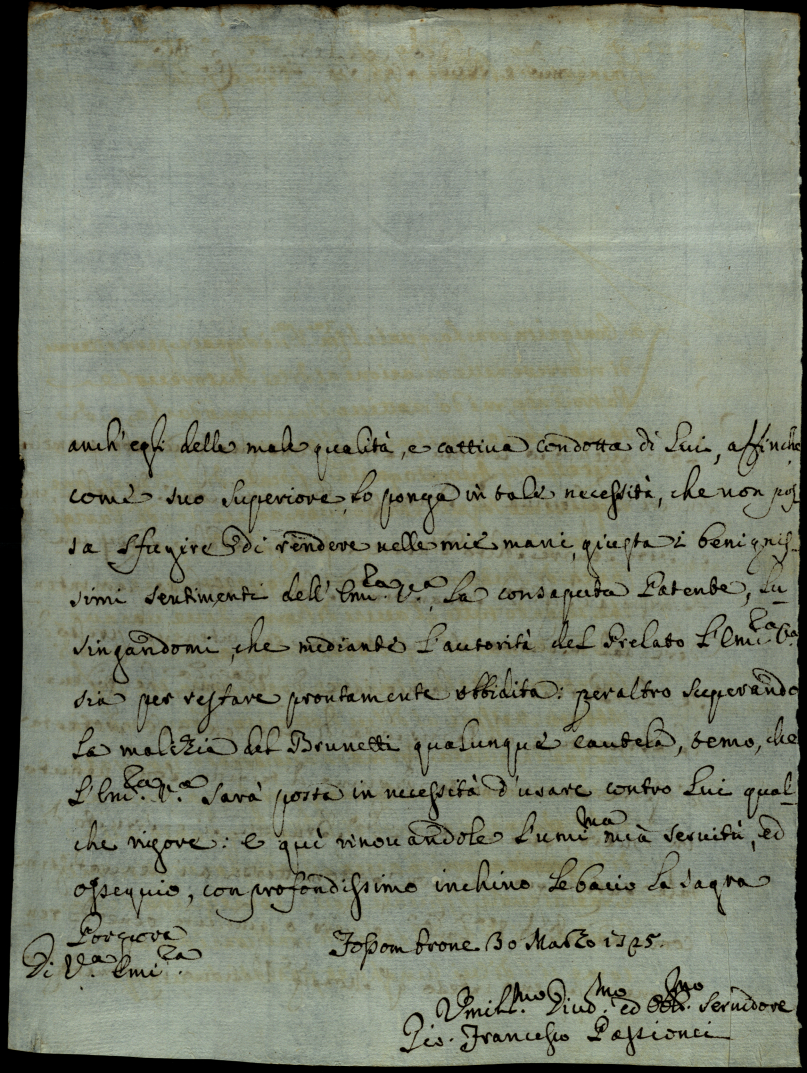 anch' egli delle male qualità, e cattiva condotta di Lui, affinche
come suo Superiore, lo ponga in tale necessità, che non pos=
sa sfugire di rendere nelle mie mani, giusta i benignis=
simi sentimenti dell' Emi.za V.a, La consaputa Patente, Lu=
singandomi, che mediante L'autorità del Prelato L'Emi.za V.a
sia per restare prontamente obbidita: peraltro superando
La malizia del Brunetti qualunque cautela, temo, che
L'Emi.za V.a sarà posta in necessità d'usare contro Lui qual=
che rigore: e quì rinovandole L'umi.ma mia servitù, ed
ossequio, con profondissimo inchino Le bacio La sagra
Porpora
Di V.a Emi.za
Fossombrone 30 Marzo 1725.
Vmill.mo Diud.mo ed Obb.mo Servidore
Gio. Francesco Passionei